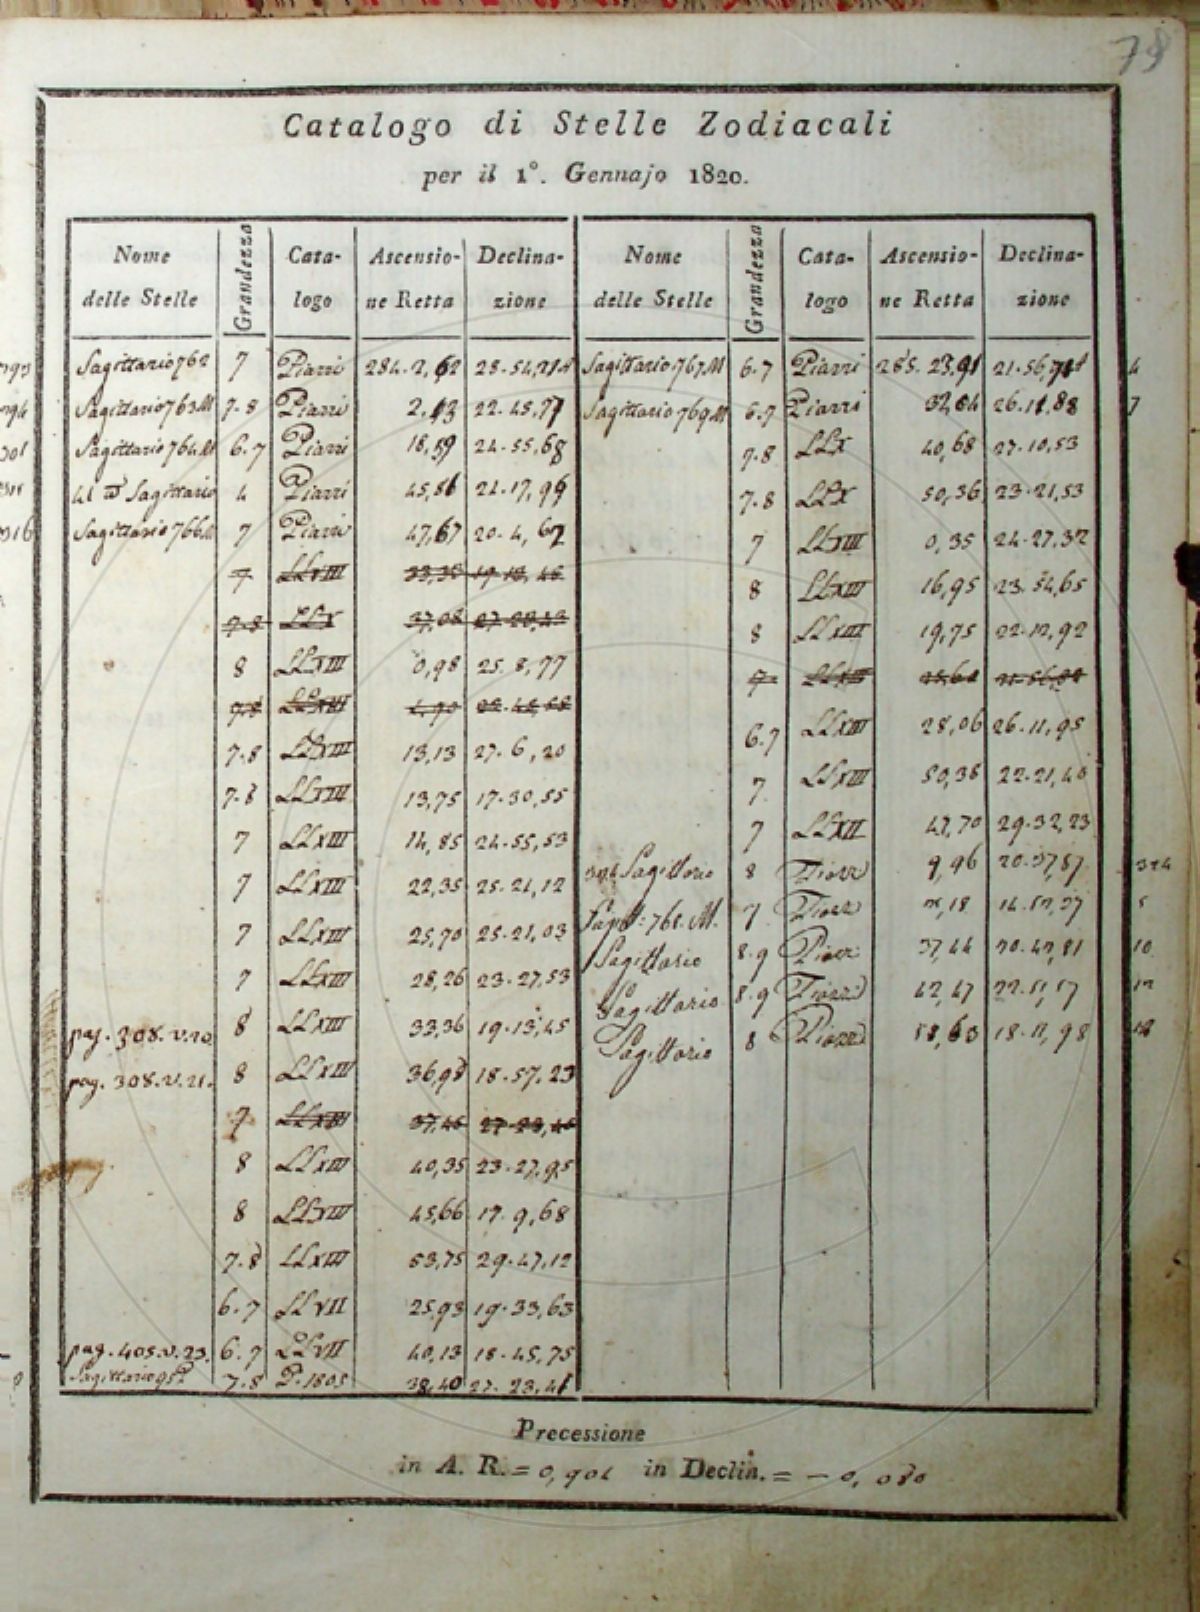 78
Catalogo di Stelle Zodiacali
per il 1°. Gennajo 1820.
Nome delle Stelle Grandezza Cata-logo Ascensio-ne Retta Declina-zione
Sagittario 762 7 Piazzi 284. 2,62 28.54,21 A
Sagittario 763 M 7.8 Piazzi 2,13 22.45,77
Sagittario 764 M 6.7 Piazzi 18,59 24.55,68
41 Sagittario 4 Piazzi 45,56 21.17,99
Sagittario 766 M 7 Piazzi 47,67 20.4,62
7 LLXIII 33,35 19.13,45
7.8 LLX 37,08 27.23,43
8 LLXIII 0,98 25.8,77
7.8 LLXIII
7.8 LLXIII 13,13 27.6,20
7.8 LLXIII 13,75 17.30,55
7 LLXIII 14,85 24.55,53
7 LLXIII 22,35 25.21,12
7 LLXIII 25,70 25.21,03
7 LLXIII 28,26 23.27,53
pag. 308. v. 20. 8 LLXIII 33,36 19.13,45
pag. 308. v. 21. 8 LLXIII 36,98 18.57,23
7 LLXIII 37,45 27.23,45
8 LLXIII 40,35 23.27,95
8 LLXIII 45,66 17.9,68
7.8 LLXIII 53,75 29.47,12
6.7 LLVII 25,93 19.33,63
pag. 405. v. 23. 6.7 LLVII 40,13 18.45,75
Sagittario 7.8 P. 1805 38,40 27.23,41
Nome delle Stelle Grandezza Cata-logo Ascensio-ne Retta Declina-zione
Sagittario 767 M 6.7 Piazzi 285. 23,91 21.56,71 A 4
Sagittario 769 M 6.7 Piazzi 32,64 26.11,88 7
7.8 LLX 40,68 27.10,53
7.8 LLX 50,36 23.21,53
7 LLXIII 0,35 24.27,32
8 LLXIII 16,95 23.54,65
8 LLXIII 19,75 22.12,92
7 LLXIII
6.7 LLXIII 28,06 26.11,95
7 LLXIII 50,38 22.21,40
7 LLXII 47,70 29.32,23
324 Sagittario 8 Piazzi 9,96 20.37,87 324
Sagitt. 768. M. 7 Piazzi 5
Sagittario 8.9 Piazzi 37,44 20.47,81 10
Sagittario 8.9 Piazzi 42,47 22.51,57 12
Sagittario 8 Piazzi 58,63 18.11,98 18
Precessione
in A. R. = 0,901 in Declin. = − 0,080